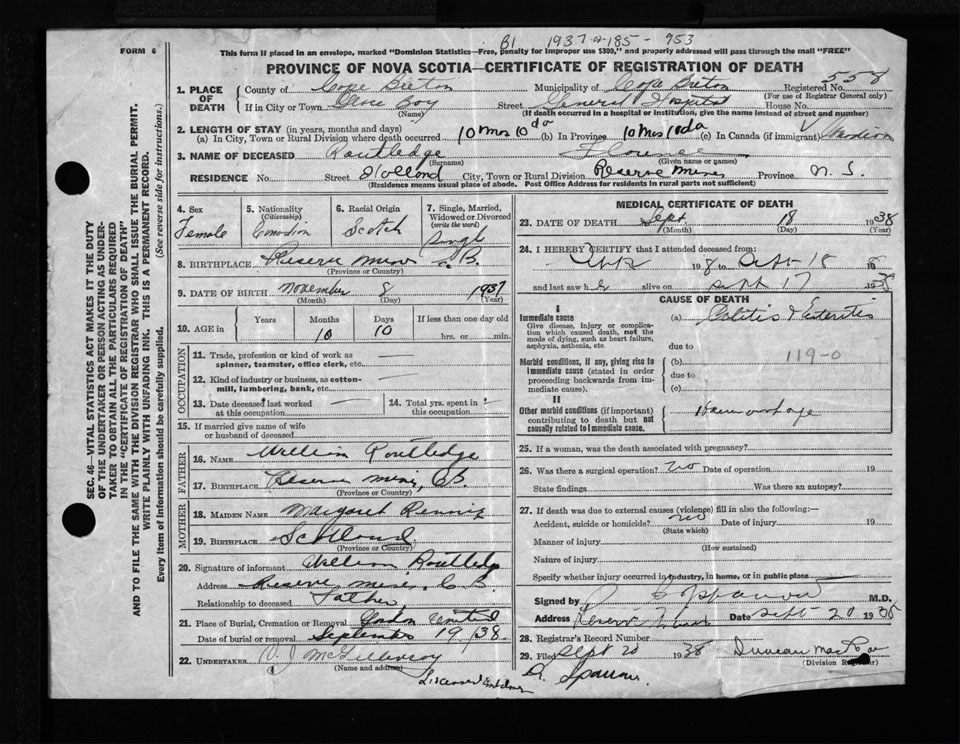 B1 1937-#-185-953
FORM 6
This form if placed in an envelope, marked "Dominion Statistics—Free, penalty for improper use $300," and properly addressed will pass through the mail "FREE"
PROVINCE OF NOVA SCOTIA—CERTIFICATE OF REGISTRATION OF DEATH
1. PLACE OF DEATH County of Cape Breton Municipality of Cape Breton Registered No. 558
(For use of Registrar General only)
If in City or Town Glace Bay (Name) Street General Hospital House No.
(If death occurred in a hospital or institution, give the name instead of street and number)
2. LENGTH OF STAY (in years, months and days)
(a) In City, Town or Rural Division where death occurred 10 mos 10 da (b) In Province 10 mos 10 da (c) In Canada (if immigrant)
3. NAME OF DECEASED Routledge (Surname) Florence (Given name or names)
RESIDENCE No. Street Holland City, Town or Rural Division Reserve Mines Province N. S.
(Residence means usual place of abode. Post Office Address for residents in rural parts not sufficient)
4. Sex Female
5. Nationality (Citizenship) Canadian
6. Racial Origin Scotch
7. Single, Married, Widowed or Divorced (write the word) Single
8. BIRTHPLACE Reserve Mines C. B.
(Province or Country)
9. DATE OF BIRTH November (Month) 8 (Day) 1937 (Year)
10. AGE in Years Months 10 Days 10 If less than one day old hrs. or min.
OCCUPATION
11. Trade, profession or kind of work as spinner, teamster, office clerk, etc. —
12. Kind of industry or business, as cotton-mill, lumbering, bank, etc. —
13. Date deceased last worked at this occupation —
14. Total yrs. spent in this occupation —
15. If married give name of wife or husband of deceased
FATHER
16. NAME William Routledge
17. BIRTHPLACE Reserve Mines, C.B.
(Province or Country)
MOTHER
18. MAIDEN NAME Margaret Rennie
19. BIRTHPLACE Scotland
(Province or Country)
20. Signature of informant William Routledge
Address Reserve Mines, C B.
Relationship to deceased Father
21. Place of Burial, Cremation or Removal United
Date of burial or removal September 19/38.
22. UNDERTAKER McGillivray
(Name and address)
Licensed Embalmer
MEDICAL CERTIFICATE OF DEATH
23. DATE OF DEATH Sept. (Month) 18 (Day) 1938 (Year)
24. I HEREBY CERTIFY that I attended deceased from
198 to Sept 18
and last saw her alive on Sept 17 1938
CAUSE OF DEATH
I
Immediate cause
Give disease, injury or complication which caused death, not the mode of dying, such as heart failure, asphyxia, asthenia, etc.
(a) Colitis & Enteritis
due to
Morbid conditions, if any, giving rise to immediate cause (stated in order proceeding backwards from immediate cause).
(b) 119-0
due to
(c)
II
Other morbid conditions (if important) contributing to death but not causally related to immediate cause.
Haemorrhage
25. If a woman, was the death associated with pregnancy?
26. Was there a surgical operation? no Date of operation 19
State findings Was there an autopsy?
27. If death was due to external causes (violence) fill in also the following:—
Accident, suicide or homicide? no Date of injury 19
(State which)
Manner of injury
(How sustained)
Nature of injury
Specify whether injury occurred in industry, in home, or in public place
Signed by M.D.
Address Reserve Mines Date Sept 20 1938
28. Registrar's Record Number
29. Filed Sept 20 1938 Duncan
(Division Registrar)
SEC. 46—VITAL STATISTICS ACT MAKES IT THE DUTY
OF THE UNDERTAKER OR PERSON ACTING AS UNDER-
TAKER TO OBTAIN ALL THE PARTICULARS REQUIRED
IN THE "CERTIFICATE OF REGISTRATION OF DEATH"
AND TO FILE THE SAME WITH THE DIVISION REGISTRAR WHO SHALL ISSUE THE BURIAL PERMIT.
WRITE PLAINLY WITH UNFADING INK. THIS IS A PERMANENT RECORD.
Every item of information should be carefully supplied. (See reverse side for instructions.)